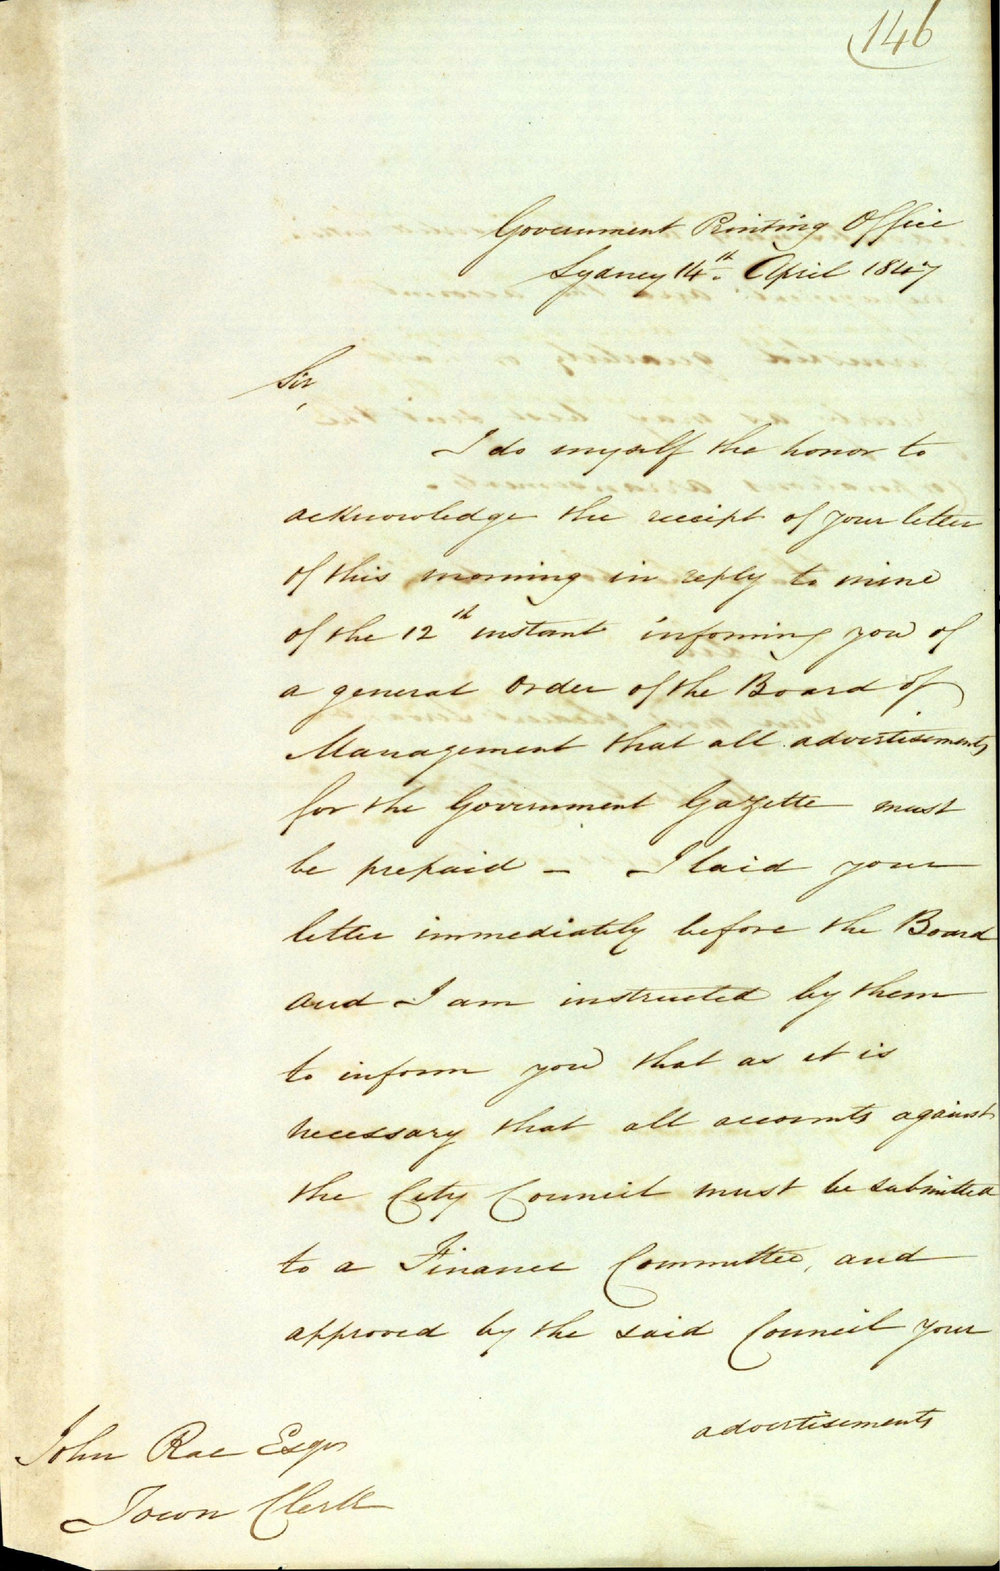 146
Government Printing Office
Sydney 14th. April 1847
Sir,
I do myself the honor to
acknowledge the receipt of your letter
of this morning in reply to mine
of the 12th instant informing you of
a general order of the Board of
Management that all advertisements
for the Government Gazette must
be prepaid – I laid your
letter immediately before the Board
and I am instructed by them
to inform you that as it is
necessary that all accounts against
the City Council must be submitted
to a Finance Committee, and
approved by the said Council your
advertisements
John Rae Esqr
Town Clerk